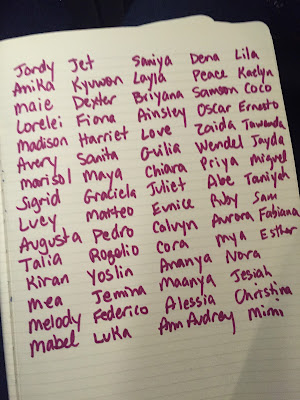 Jordy Jet Saniya Dena Lila
Anika Kyuwon Layla Peace Kaelyn
Maie Dexter Briyana Samson Coco
Lorelei Fiona Ainsley Oscar Ernesto
Madison Harriet Love Zaida Tawanda
Avery Sanita Giulia Wendel Jayda
Marisol Maya Chiara Priya Miguel
Sigrid Graciela Juliet Abe Taniyah
Lucy Matteo Eunice Ruby Sam
Augusta Pedro Calvyn Aurora Fabiana
Talia Rogelio Cora Mya Esther
Kiran Yoslin Ananya Nora
Mea Jemina Maanya Jesiah
Melody Federico Alessia Christina
Mabel Luka Ann Audrey Mimi